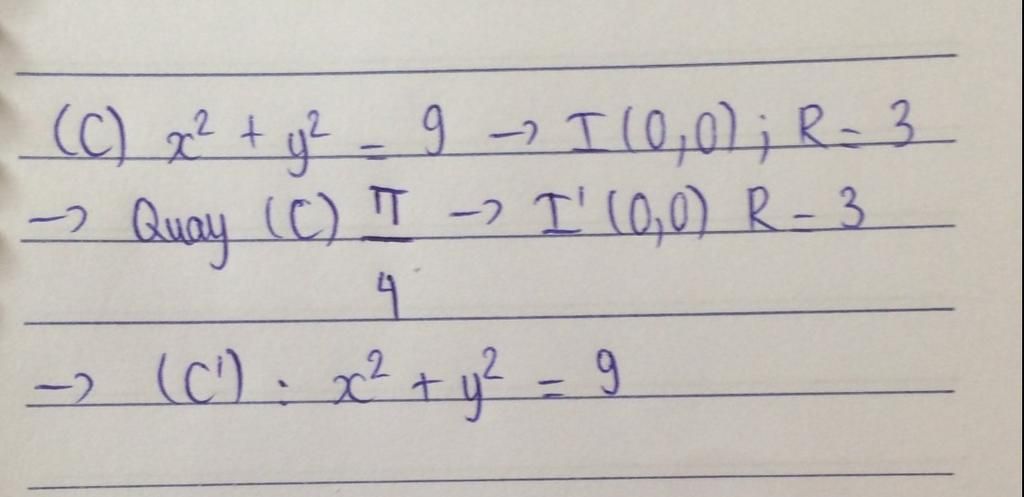 (C) x² + y² = 9 → I (0,0) ; R = 3
→ Quay (C) π/4 → I' (0,0) R = 3
→ (C') : x² + y² = 9